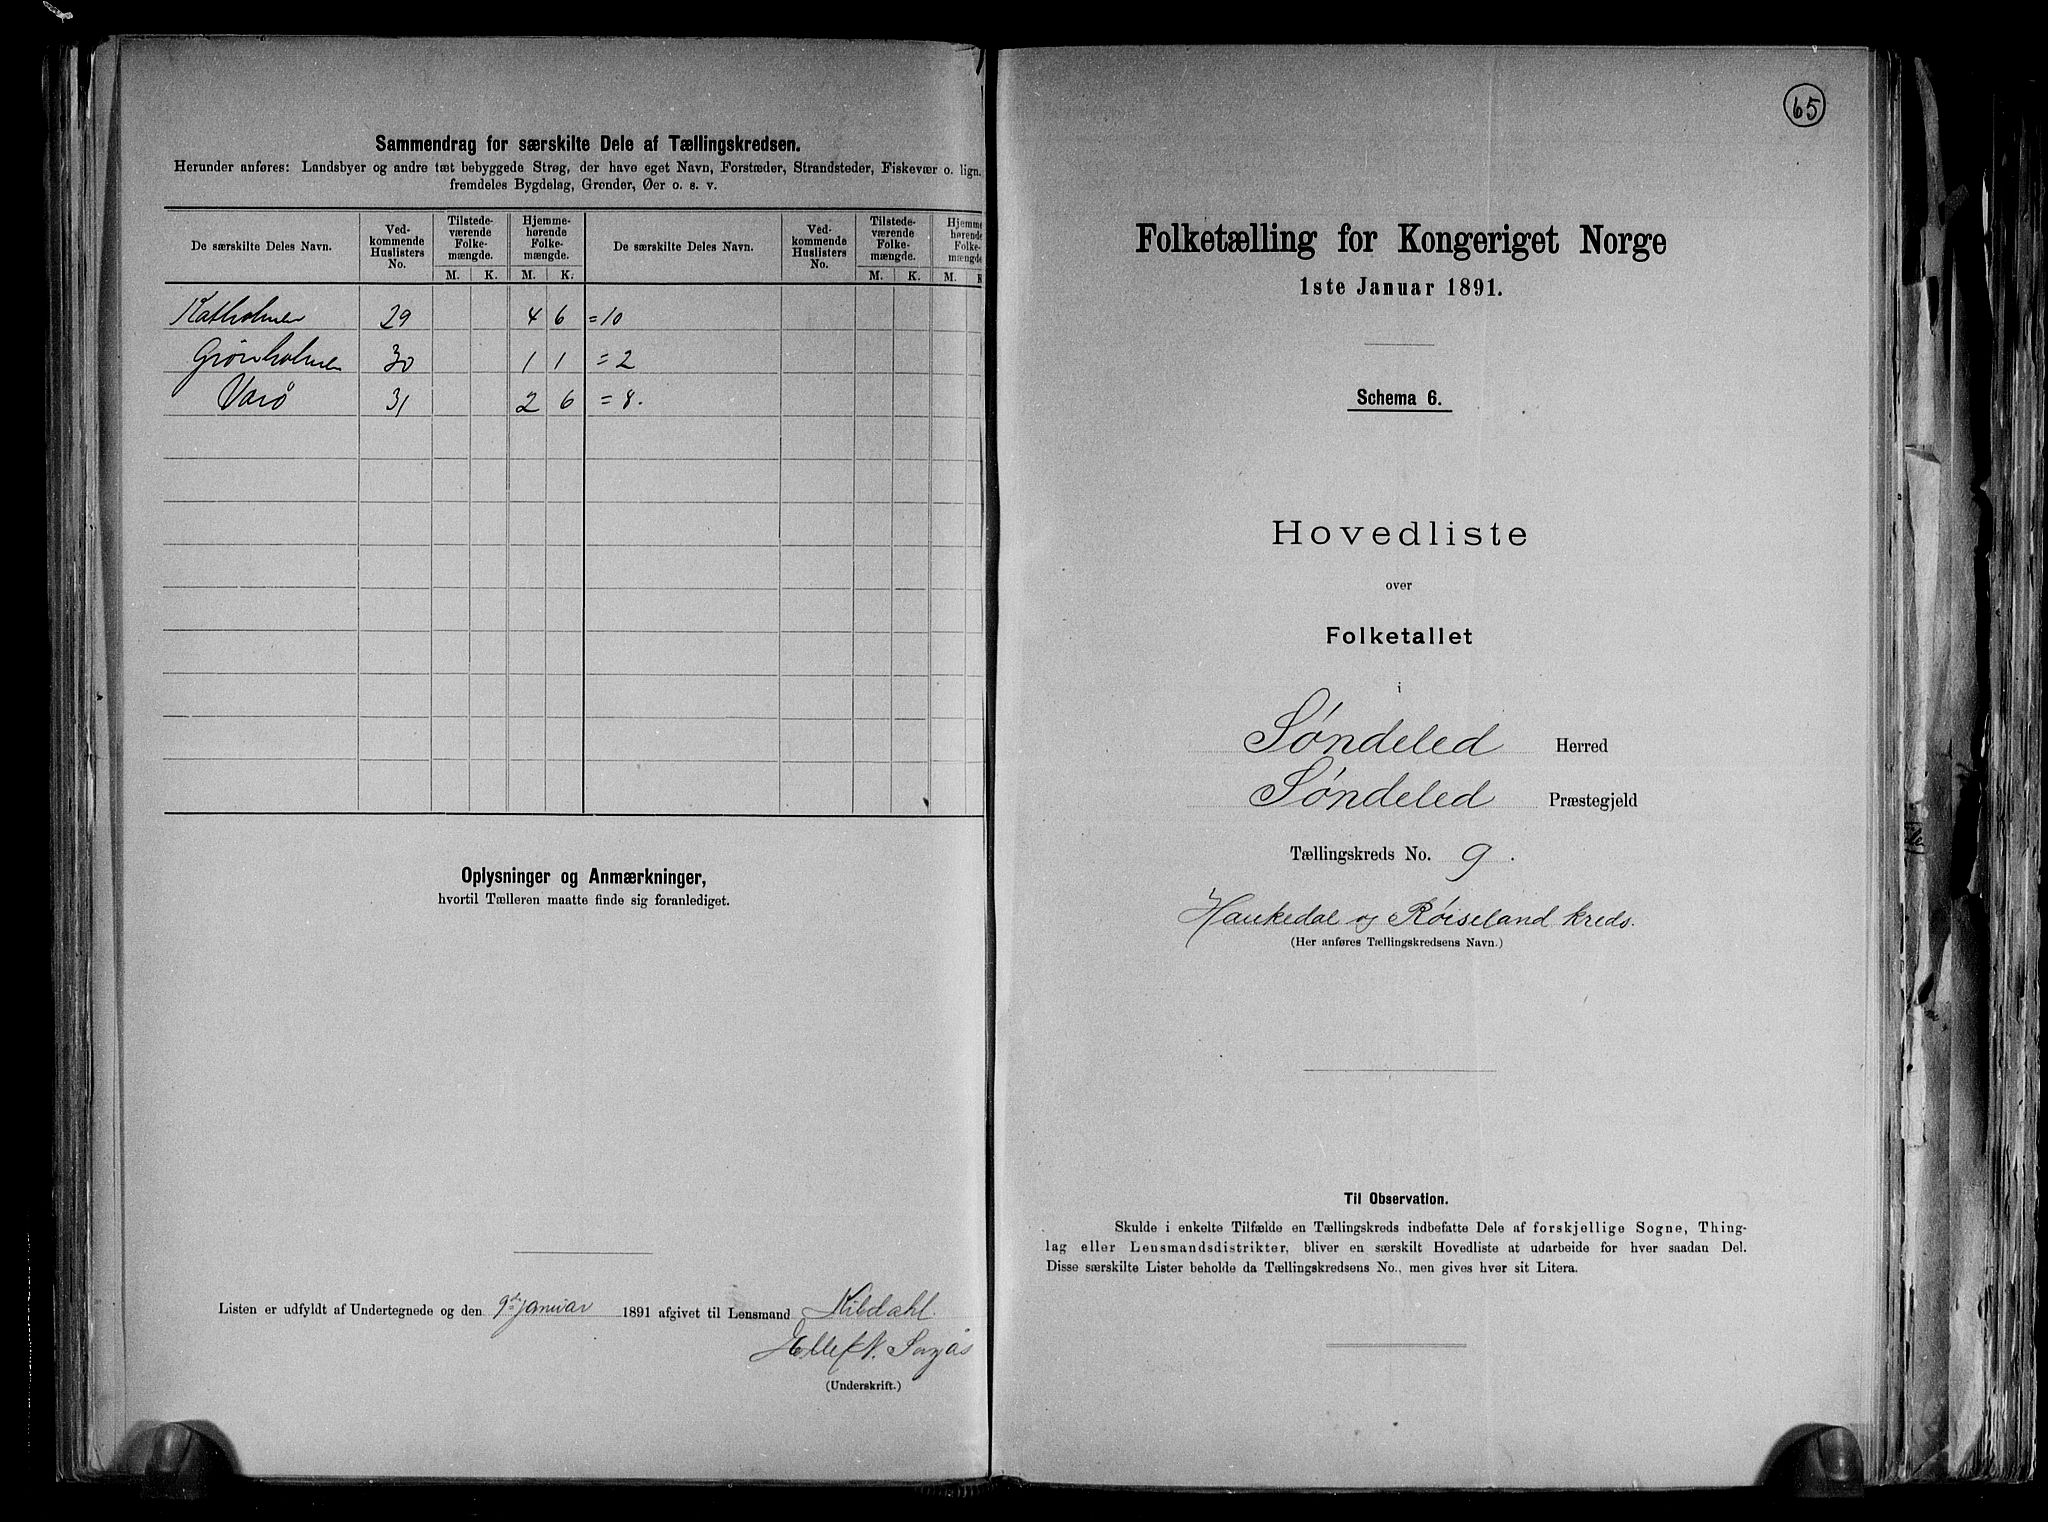 Sammendrag for særskilte Dele af Tællingskredsen.
Herunder anføres: Landsbyer og andre tæt bebyggede Strøg, der have eget Navn, Forstæder, Strandsteder, Fiskevær o. lign.
fremdeles Bygdelag, Grender, Øer o. s. v.
De særskilte Deles Navn. Ved-kommende Huslisters No. Tilstede-værende Folke-mængde. Hjemme-hørende Folke-mængde. De særskilte Deles Navn. Ved-kommende Huslisters No. Tilstede-værende Folke-mængde. Hjemme-hørende Folke-mængde
M. K. M. K. M. K. M. K
Katholmen 29 4 6 =10
Grønholmen 30 1 1 =2
Varø 31 2 6 =8.
Oplysninger og Anmærkninger,
hvortil Tælleren maatte finde sig foranlediget.
Listen er udfyldt af Undertegnede og den 9de januar 1891 afgivet til Lensmand Kildahl.
Ellef N.
(Underskrift.)
65
Folketælling for Kongeriget Norge
1ste Januar 1891.
Schema 6.
Hovedliste
over
Folketallet
i
Søndeled Herred
Søndeled Præstegjeld
Tællingskreds No. 9.
Haukedal og Røiseland kreds.
(Her anføres Tællingskredsens Navn.)
Til Observation.
Skulde i enkelte Tilfælde en Tællingskreds indbefatte Dele af forskjellige Sogne, Thing-
lag eller Lensmandsdistrikter, bliver en særskilt Hovedliste at udarbeide for hver saadan Del.
Disse særskilte Lister beholde da Tællingskredsens No., men gives hver sit Litera.